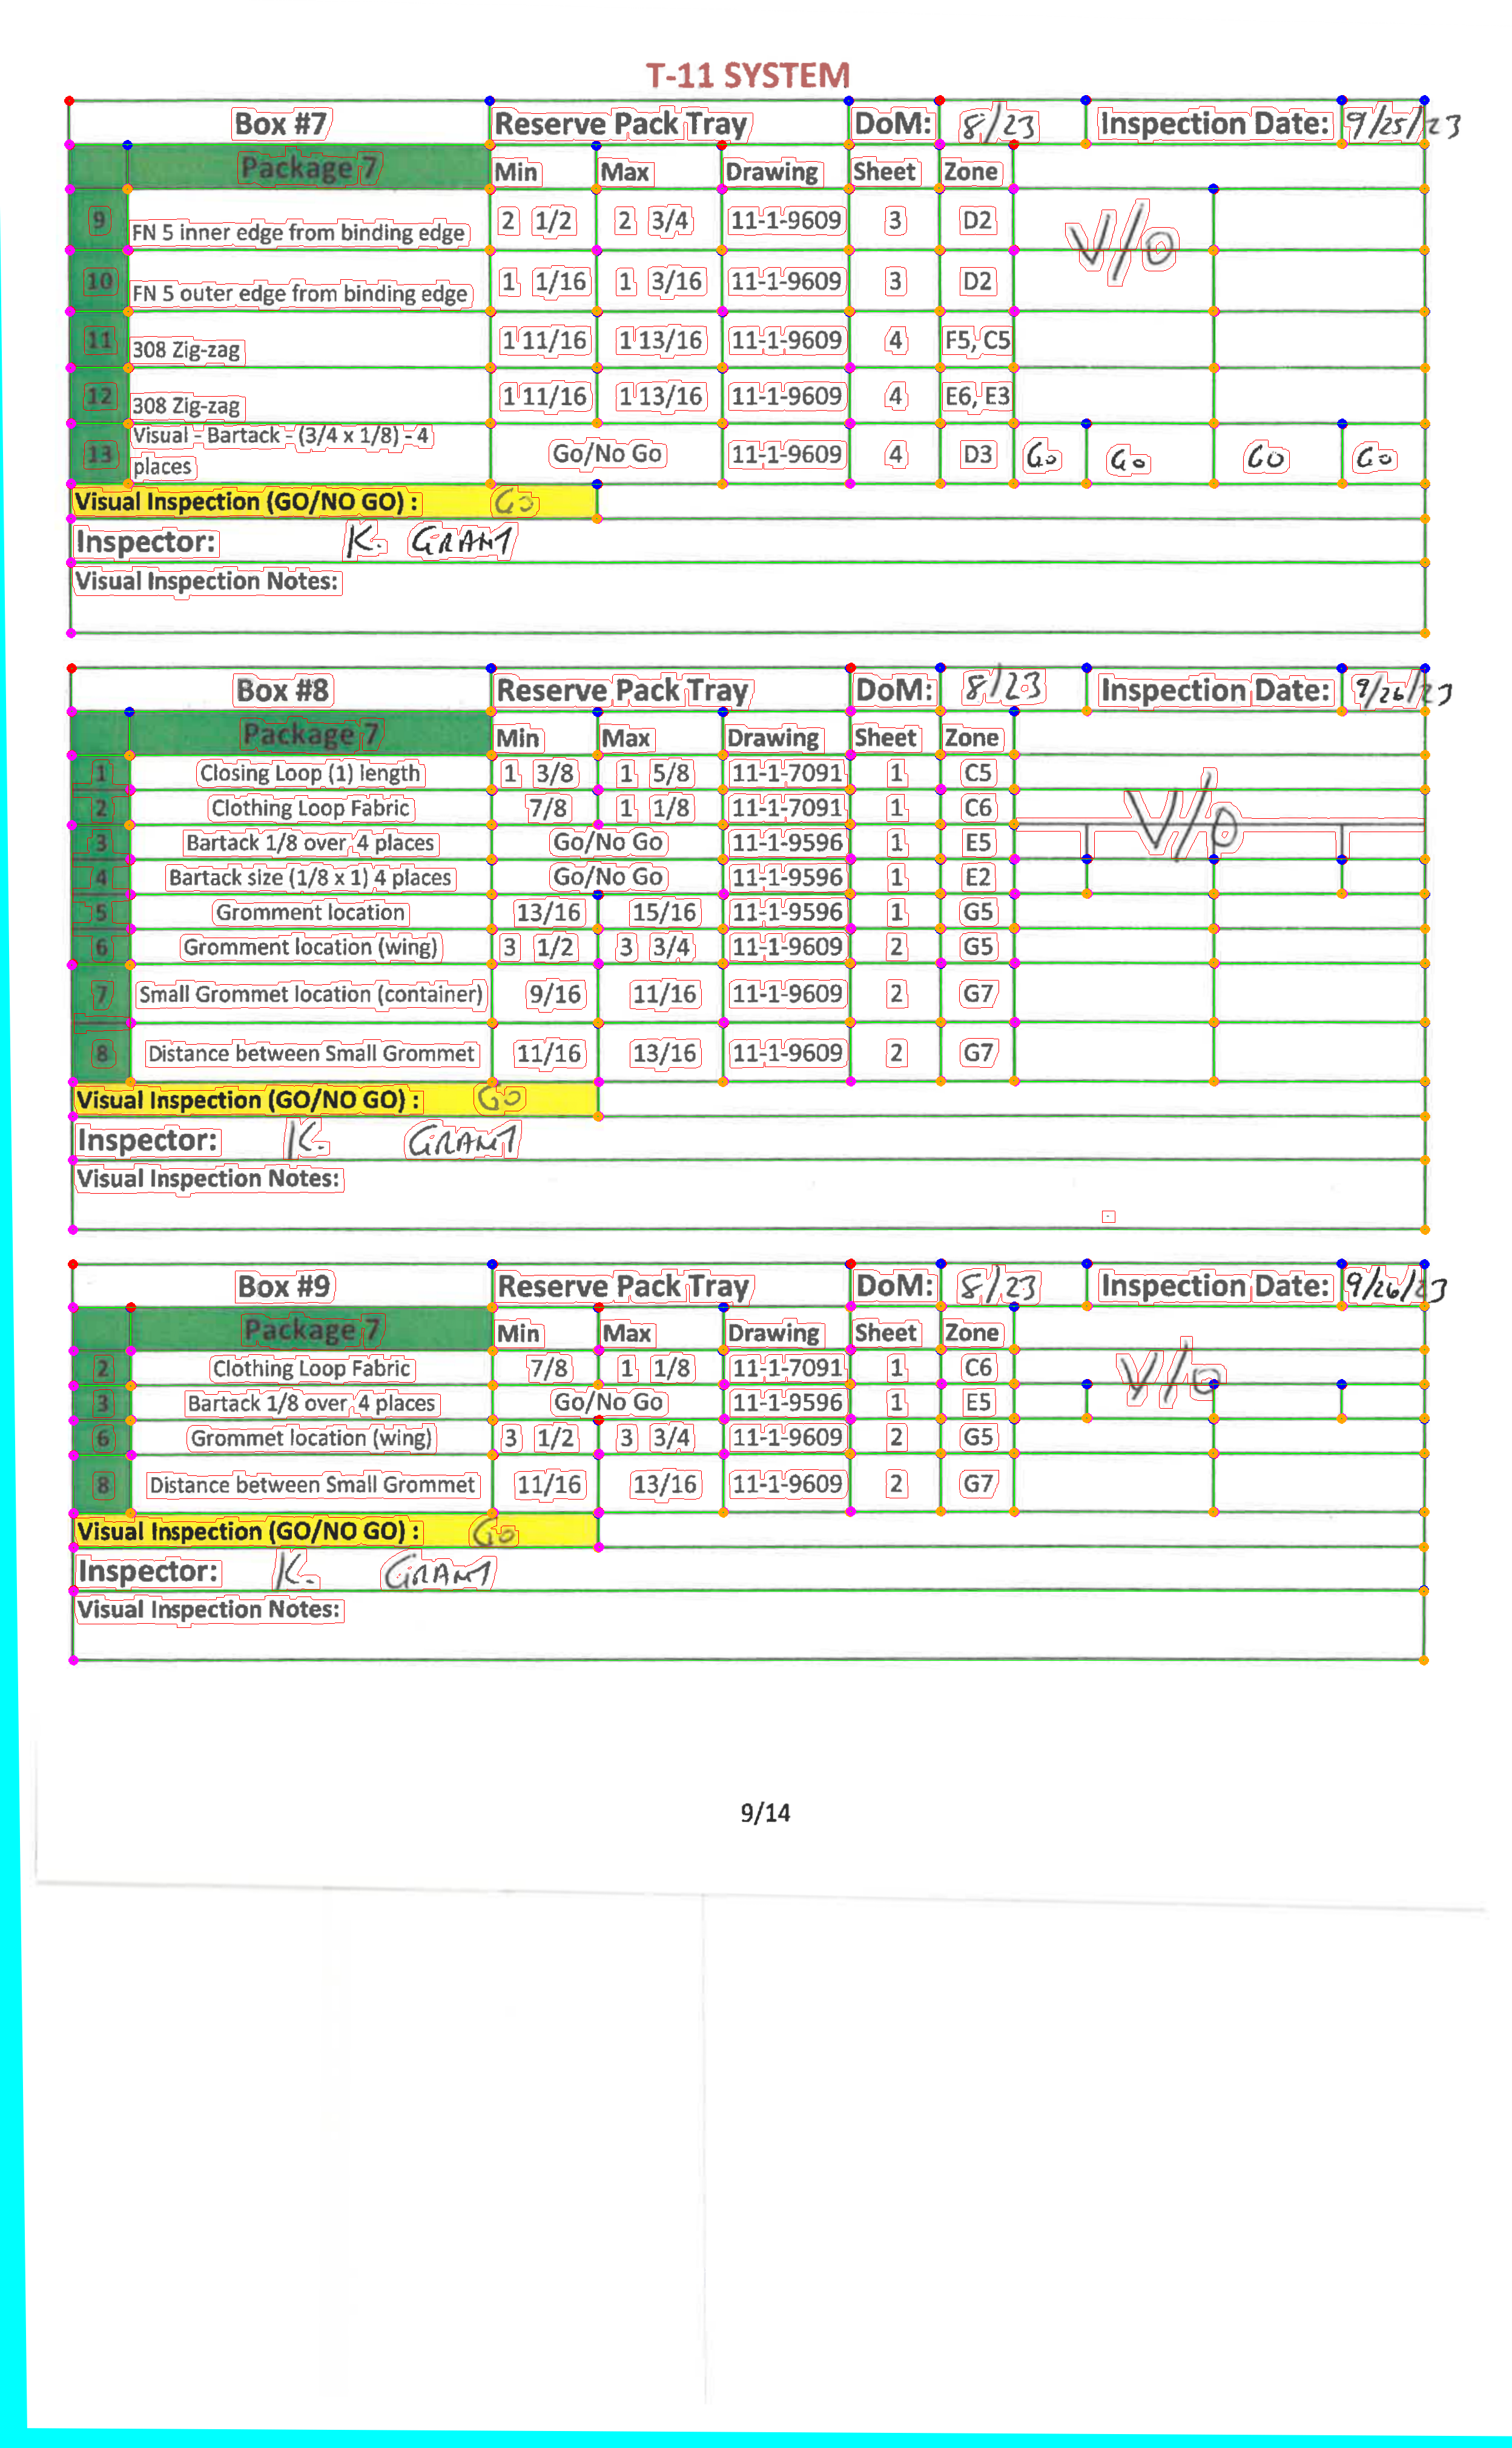 T-11 SYSTEM
Box #7 Reserve Pack Tray DoM: 8/23 Inspection Date: 9/25/23
Package 7 Min Max Drawing Sheet Zone
9 FN 5 inner edge from binding edge 2 1/2 2 3/4 11-1-9609 3 D2 V/O
10 FN 5 outer edge from binding edge 1 1/16 1 3/16 11-1-9609 3 D2
11 308 Zig-zag 1 11/16 1 13/16 11-1-9609 4 F5, C5
12 308 Zig-zag 1 11/16 1 13/16 11-1-9609 4 E6, E3
13 Visual - Bartack - (3/4 x 1/8) - 4 places Go/No Go 11-1-9609 4 D3 GO GO GO GO
Visual Inspection (GO/NO GO) : GO
Inspector: K. GRANT
Visual Inspection Notes:
Box #8 Reserve Pack Tray DoM: 8/23 Inspection Date: 9/26/23
Package 7 Min Max Drawing Sheet Zone
1 Closing Loop (1) length 1 3/8 1 5/8 11-1-7091 1 C5
2 Clothing Loop Fabric 7/8 1 1/8 11-1-7091 1 C6 V/O
3 Bartack 1/8 over 4 places Go/No Go 11-1-9596 1 E5
4 Bartack size (1/8 x 1) 4 places Go/No Go 11-1-9596 1 E2
5 Gromment location 13/16 15/16 11-1-9596 1 G5
6 Gromment location (wing) 3 1/2 3 3/4 11-1-9609 2 G5
7 Small Grommet location (container) 9/16 11/16 11-1-9609 2 G7
8 Distance between Small Grommet 11/16 13/16 11-1-9609 2 G7
Visual Inspection (GO/NO GO) : GO
Inspector: K. GRANT
Visual Inspection Notes:
Box #9 Reserve Pack Tray DoM: 8/23 Inspection Date: 9/26/23
Package 7 Min Max Drawing Sheet Zone
2 Clothing Loop Fabric 7/8 1 1/8 11-1-7091 1 C6 V/O
3 Bartack 1/8 over 4 places Go/No Go 11-1-9596 1 E5
6 Grommet location (wing) 3 1/2 3 3/4 11-1-9609 2 G5
8 Distance between Small Grommet 11/16 13/16 11-1-9609 2 G7
Visual Inspection (GO/NO GO) : GO
Inspector: K. GRANT
Visual Inspection Notes:
9/14